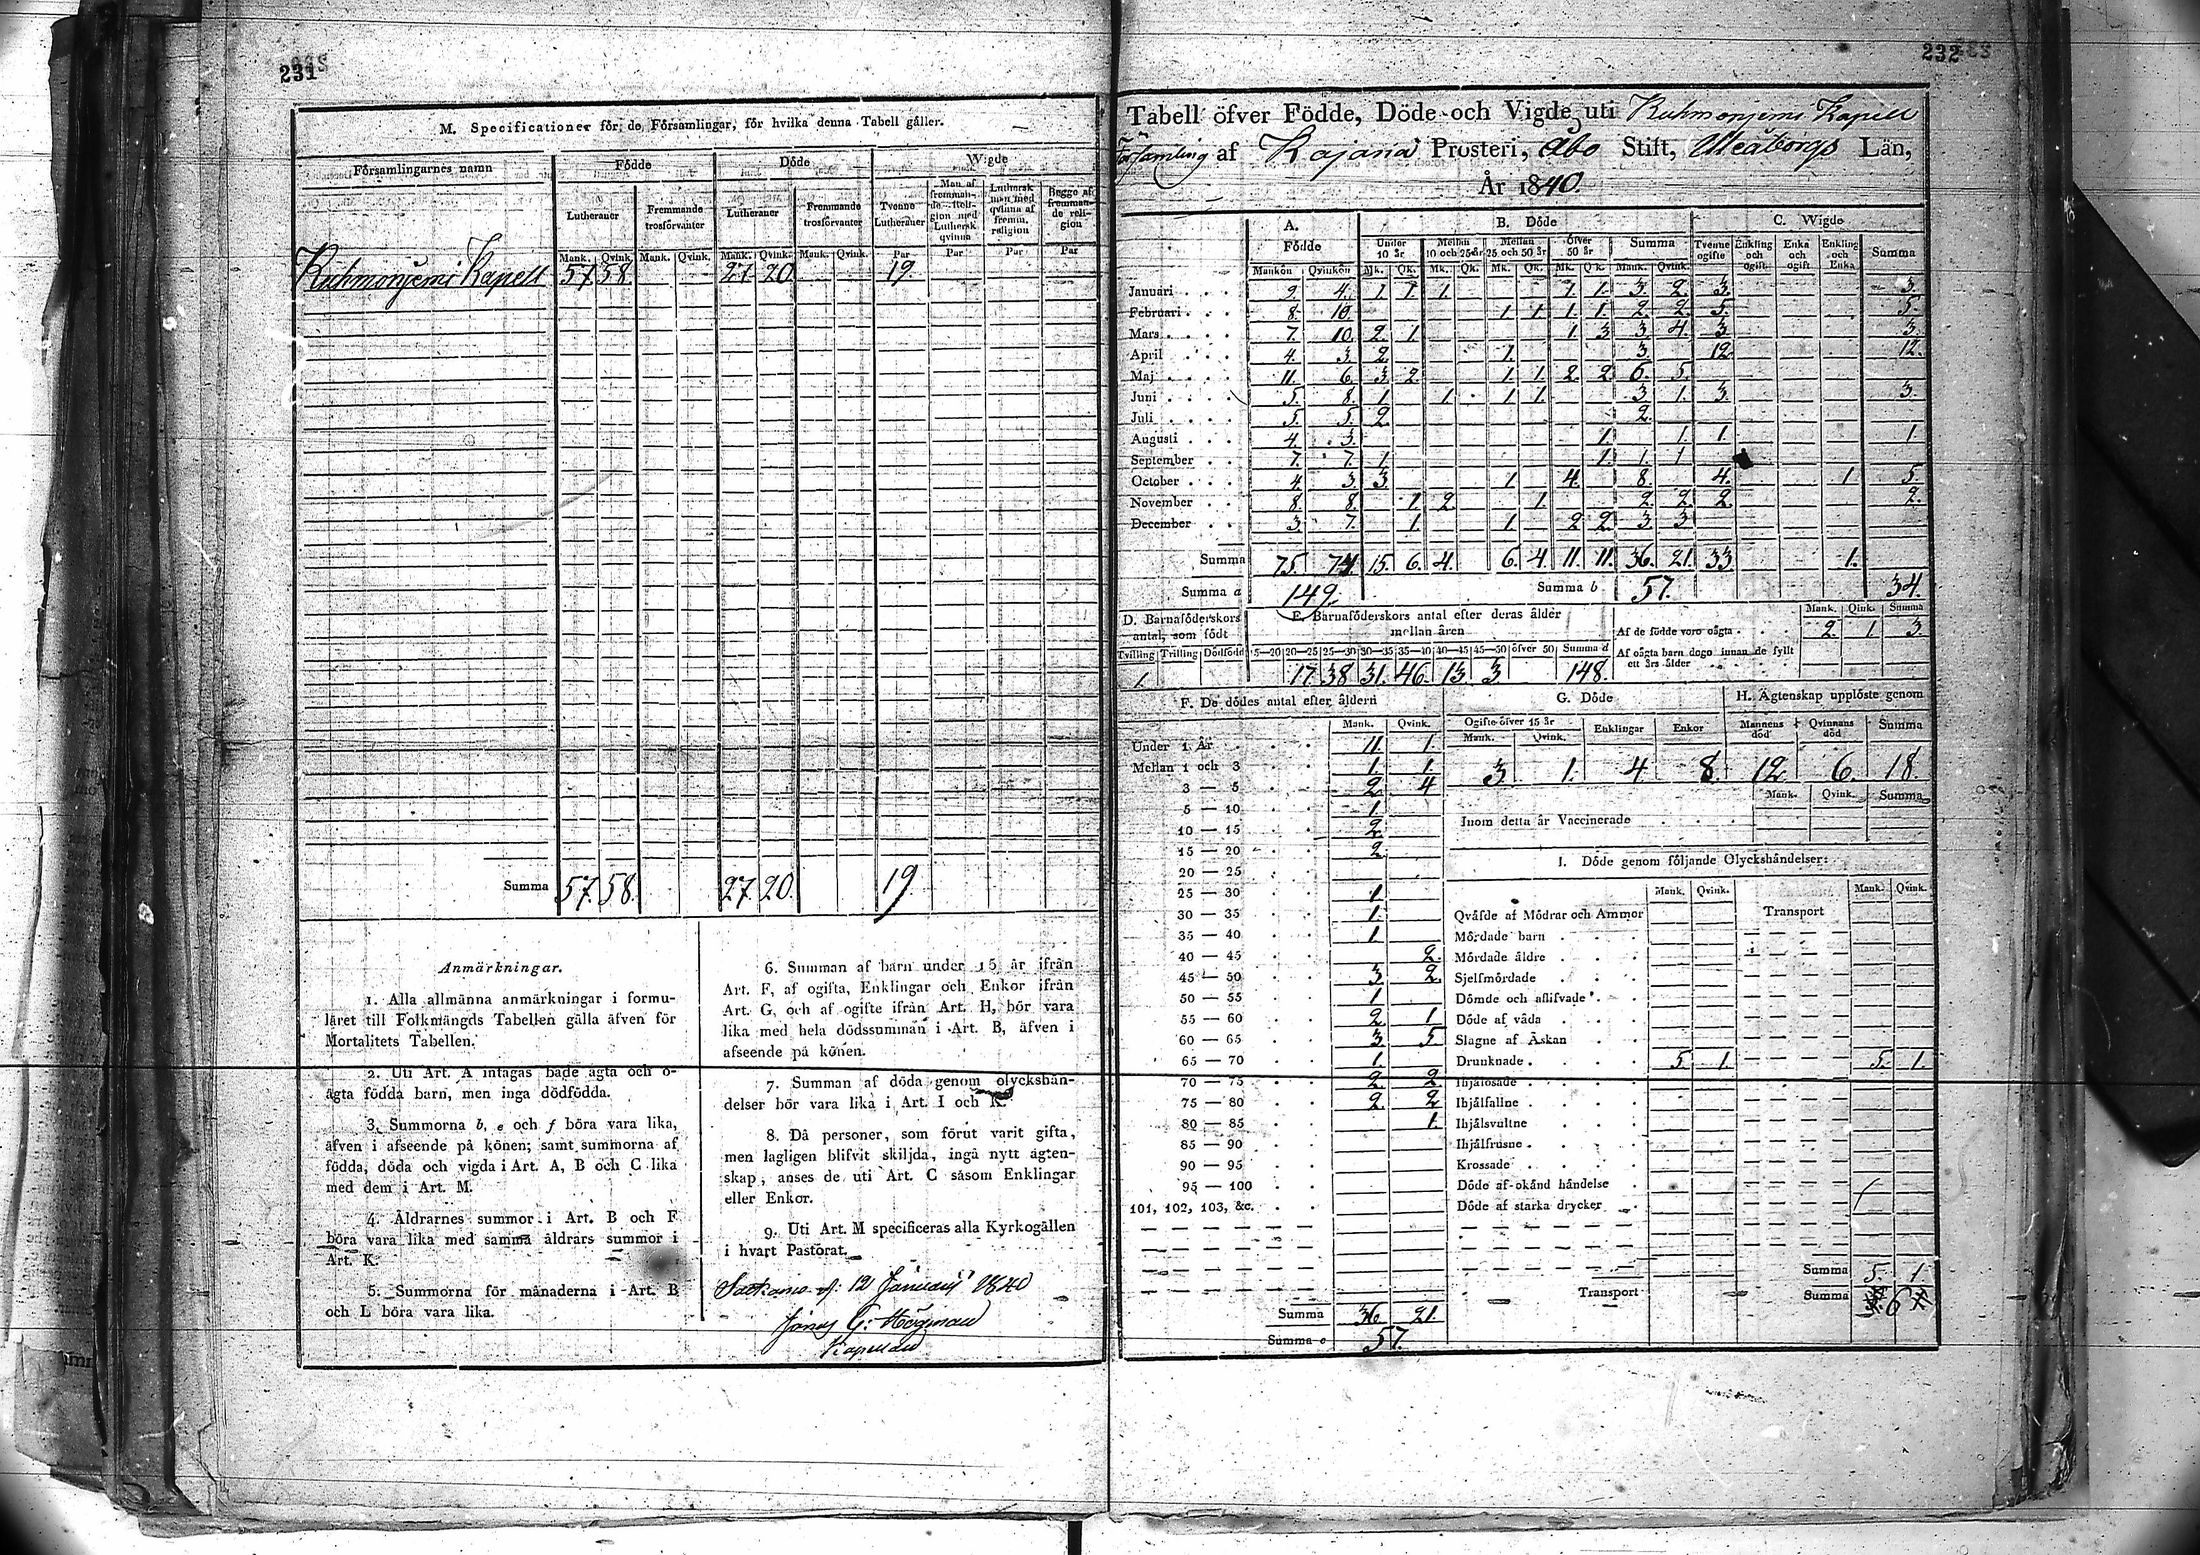 231
M. Specificationer för de Församlingar, för hvilka denna Tabell gäller.
Församlingarnes namn Födde Döde Wigde
Lutheraner Fremmande trosförvanter Lutheraner Fremmande trosförvanter Tvenne Lutheraner Man af fremmande Religion med Luthersk qvinna Luthersk man med qvinna af fremm. religion Begge af fremmande religion
Mank. Qvink. Mank. Qvink. Mank. Qvink. Mank. Qvink. Par Par Par Par
Kuhmonjemi Kapell 57. 58. 27. 20. 19.
Summa 57. 58. 27. 20. 19
Anmärkningar.
1. Alla allmänna anmärkningar i formu-
läret till Folkmängds Tabellen gälla äfven för
Mortalitets Tabellen.
2. Uti Art. A intagas både ägta och o-
ägta födda barn, men inga dödfödda.
3. Summorna b, e och f böra vara lika,
äfven i afseende på könen; samt summorna af
födda, döda och vigda i Art. A, B och C lika
med dem i Art. M.
4. Åldrarnes summor i Art. B och F
böra vara lika med samma åldrars summor i
Art. K.
5. Summorna för månaderna i Art. B
och L böra vara lika.
6. Summan af barn under 15 år ifrån
Art. F, af ogifta, Enklingar och Enkor ifrån
Art. G, och af ogifte ifrån Art. H, bör vara
lika med hela dödssumman i Art. B, äfven i
afseende på könen.
7. Summan af döda genom olyckshän-
delser bör vara lika i Art. I och K.
8. Då personer, som förut varit gifta,
men lagligen blifvit skiljda, ingå nytt ägten-
skap, anses de uti Art. C såsom Enklingar
eller Enkor.
9. Uti Art. M specificeras alla Kyrkogällen
i hvart Pastorat.
12 Januarii 1840
Kapellan
232
Tabell öfver Födde, Döde och Vigde uti Kuhmonjemi Kapell
Församling af Kajana Prosteri, Åbo Stift, Uleåborgs Län,
År 1840.
A. Födde B. Döde C. Wigde
Under 10 år Mellan 10 och 25 år Mellan 25 och 50 år Öfver 50 år Summa Tvenne ogifte Enkling och ogift Enka och ogift Enkling och Enka Summa
Mankön Qvinkön Mk. Qk. Mk. Qk. Mk. Qk. Mk. Qk. Mank. Qvink.
Januari 9. 4. 1. 1. 1. 1. 1. 3. 2. 3. 3.
Februari 8. 10. 1. 1. 1. 1. 2. 2. 5. 5.
Mars 7. 10. 2. 1. 1. 3 3. 4. 3. 3.
April 4. 3. 2. 1. 3. 12 12.
Maj 11. 6. 3. 2. 1. 1. 2. 2. 6. 5.
Juni 5. 8. 1. 1. 1 1 3. 1. 3. 3.
Juli 5. 5. 2. 2.
Augusti 4. 3. 1. 1. 1. 1
September 7. 7. 1. 1. 1. 1
October 4. 3. 3. 1. 4. 8. 4. 1 5.
November 8. 8. 1. 2. 1. 2. 2. 2. 2.
December 3. 7. 1. 1. 2 2. 3. 3.
Summa 75. 74 15. 6. 4. 6. 4. 11. 11. 36. 21. 33 1.
Summa a 149. Summa b 57. 34.
D. Barnaföderskors antal, som födt
Tvilling Trilling Dödfödd
1.
E. Barnaföderskors antal efter deras ålder mellan åren
15—20 20—25 25—30 30—35 35—40 40—45 45—50 öfver 50 Summa d
17 38 31. 46. 13. 3. 148.
Mank. Qink. Summa
Af de födde voro oägta 2. 1. 3.
Af oägta barn dogo innan de fyllt ett års ålder
F. De dödes antal efter åldern
Mank. Qvink.
Under 1 År 11. 1.
Mellan 1 och 3 1. 1.
3 — 5 2 4
5 — 10 1.
10 — 15 2.
15 — 20 2.
20 — 25
25 — 30 1.
30 — 35 1.
35 — 40 1
40 — 45 2.
45 — 50 3 2.
50 — 55 1.
55 — 60 2. 1
60 — 65 3. 5.
65 — 70 1.
70 — 75 2 2
75 — 80 2. 2
80 — 85 1.
85 — 90
90 — 95
95 — 100
101, 102, 103, &c.
Summa 36 21.
Summa e 57.
G. Döde
Ogifte öfver 15 år Enklingar Enkor
Mank. Qvink.
3 1. 4 8.
H. Ägtenskap upplöste genom
Mannens död Qvinnans död Summa
12 6. 18.
Mank. Qvink. Summa
Inom detta år Vaccinerade
I. Döde genom följande Olyckshändelser:
Mank. Qvink. Mank. Qvink.
Qväfde af Mödrar och Ammor Transport
Mördade barn
Mördade äldre
Sjelfmördade
Dömde och aflifvade
Döde af våda
Slagne af Åskan
Drunknade 5 1. 5. 1.
Ihjälösade
Ihjälfallne
Ihjälsvultne
Ihjälfrusne
Krossade
Döde af okänd händelse
Döde af starka drycker
Summa 5. 1
Transport Summa 6